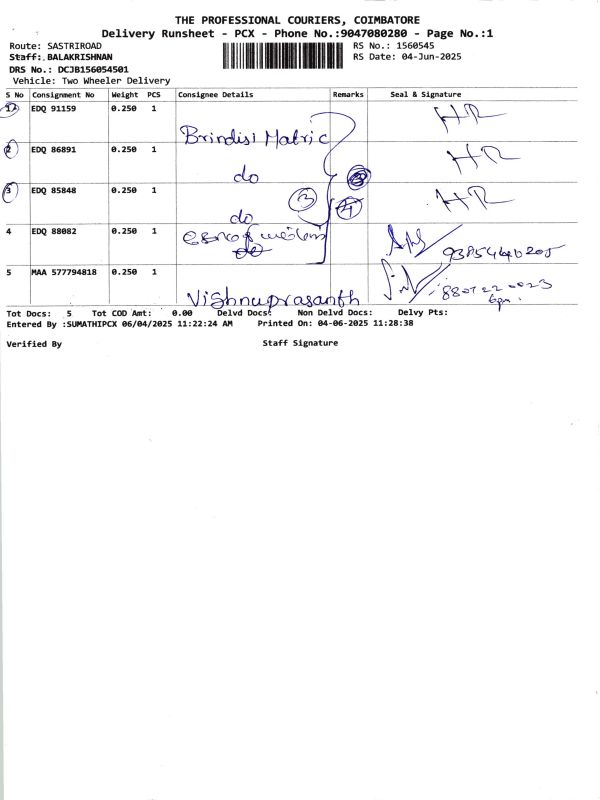 THE PROFESSIONAL COURIERS, COIMBATORE
Delivery Runsheet - PCX - Phone No.:9047080280 - Page No.:1
Route: SASTRIROAD RS No.: 1560545
Staff: BALAKRISHNAN RS Date: 04-Jun-2025
DRS No.: DCJB156054501
Vehicle: Two Wheeler Delivery
S No Consignment No Weight PCS Consignee Details Remarks Seal & Signature
1 EDQ 91159 0.250 1 Brindisi Matric HR
2 EDQ 86891 0.250 1 do HR
3 EDQ 85848 0.250 1 do 3 4 HR
4 EDQ 88082 0.250 1
5 MAA 577794818 0.250 1 Vishnuprasanth
6pm.
Tot Docs: 5 Tot COD Amt: 0.00 Delvd Docs: Non Delvd Docs: Delvy Pts:
Entered By :SUMATHIPCX 06/04/2025 11:22:24 AM Printed On: 04-06-2025 11:28:38
Verified By Staff Signature